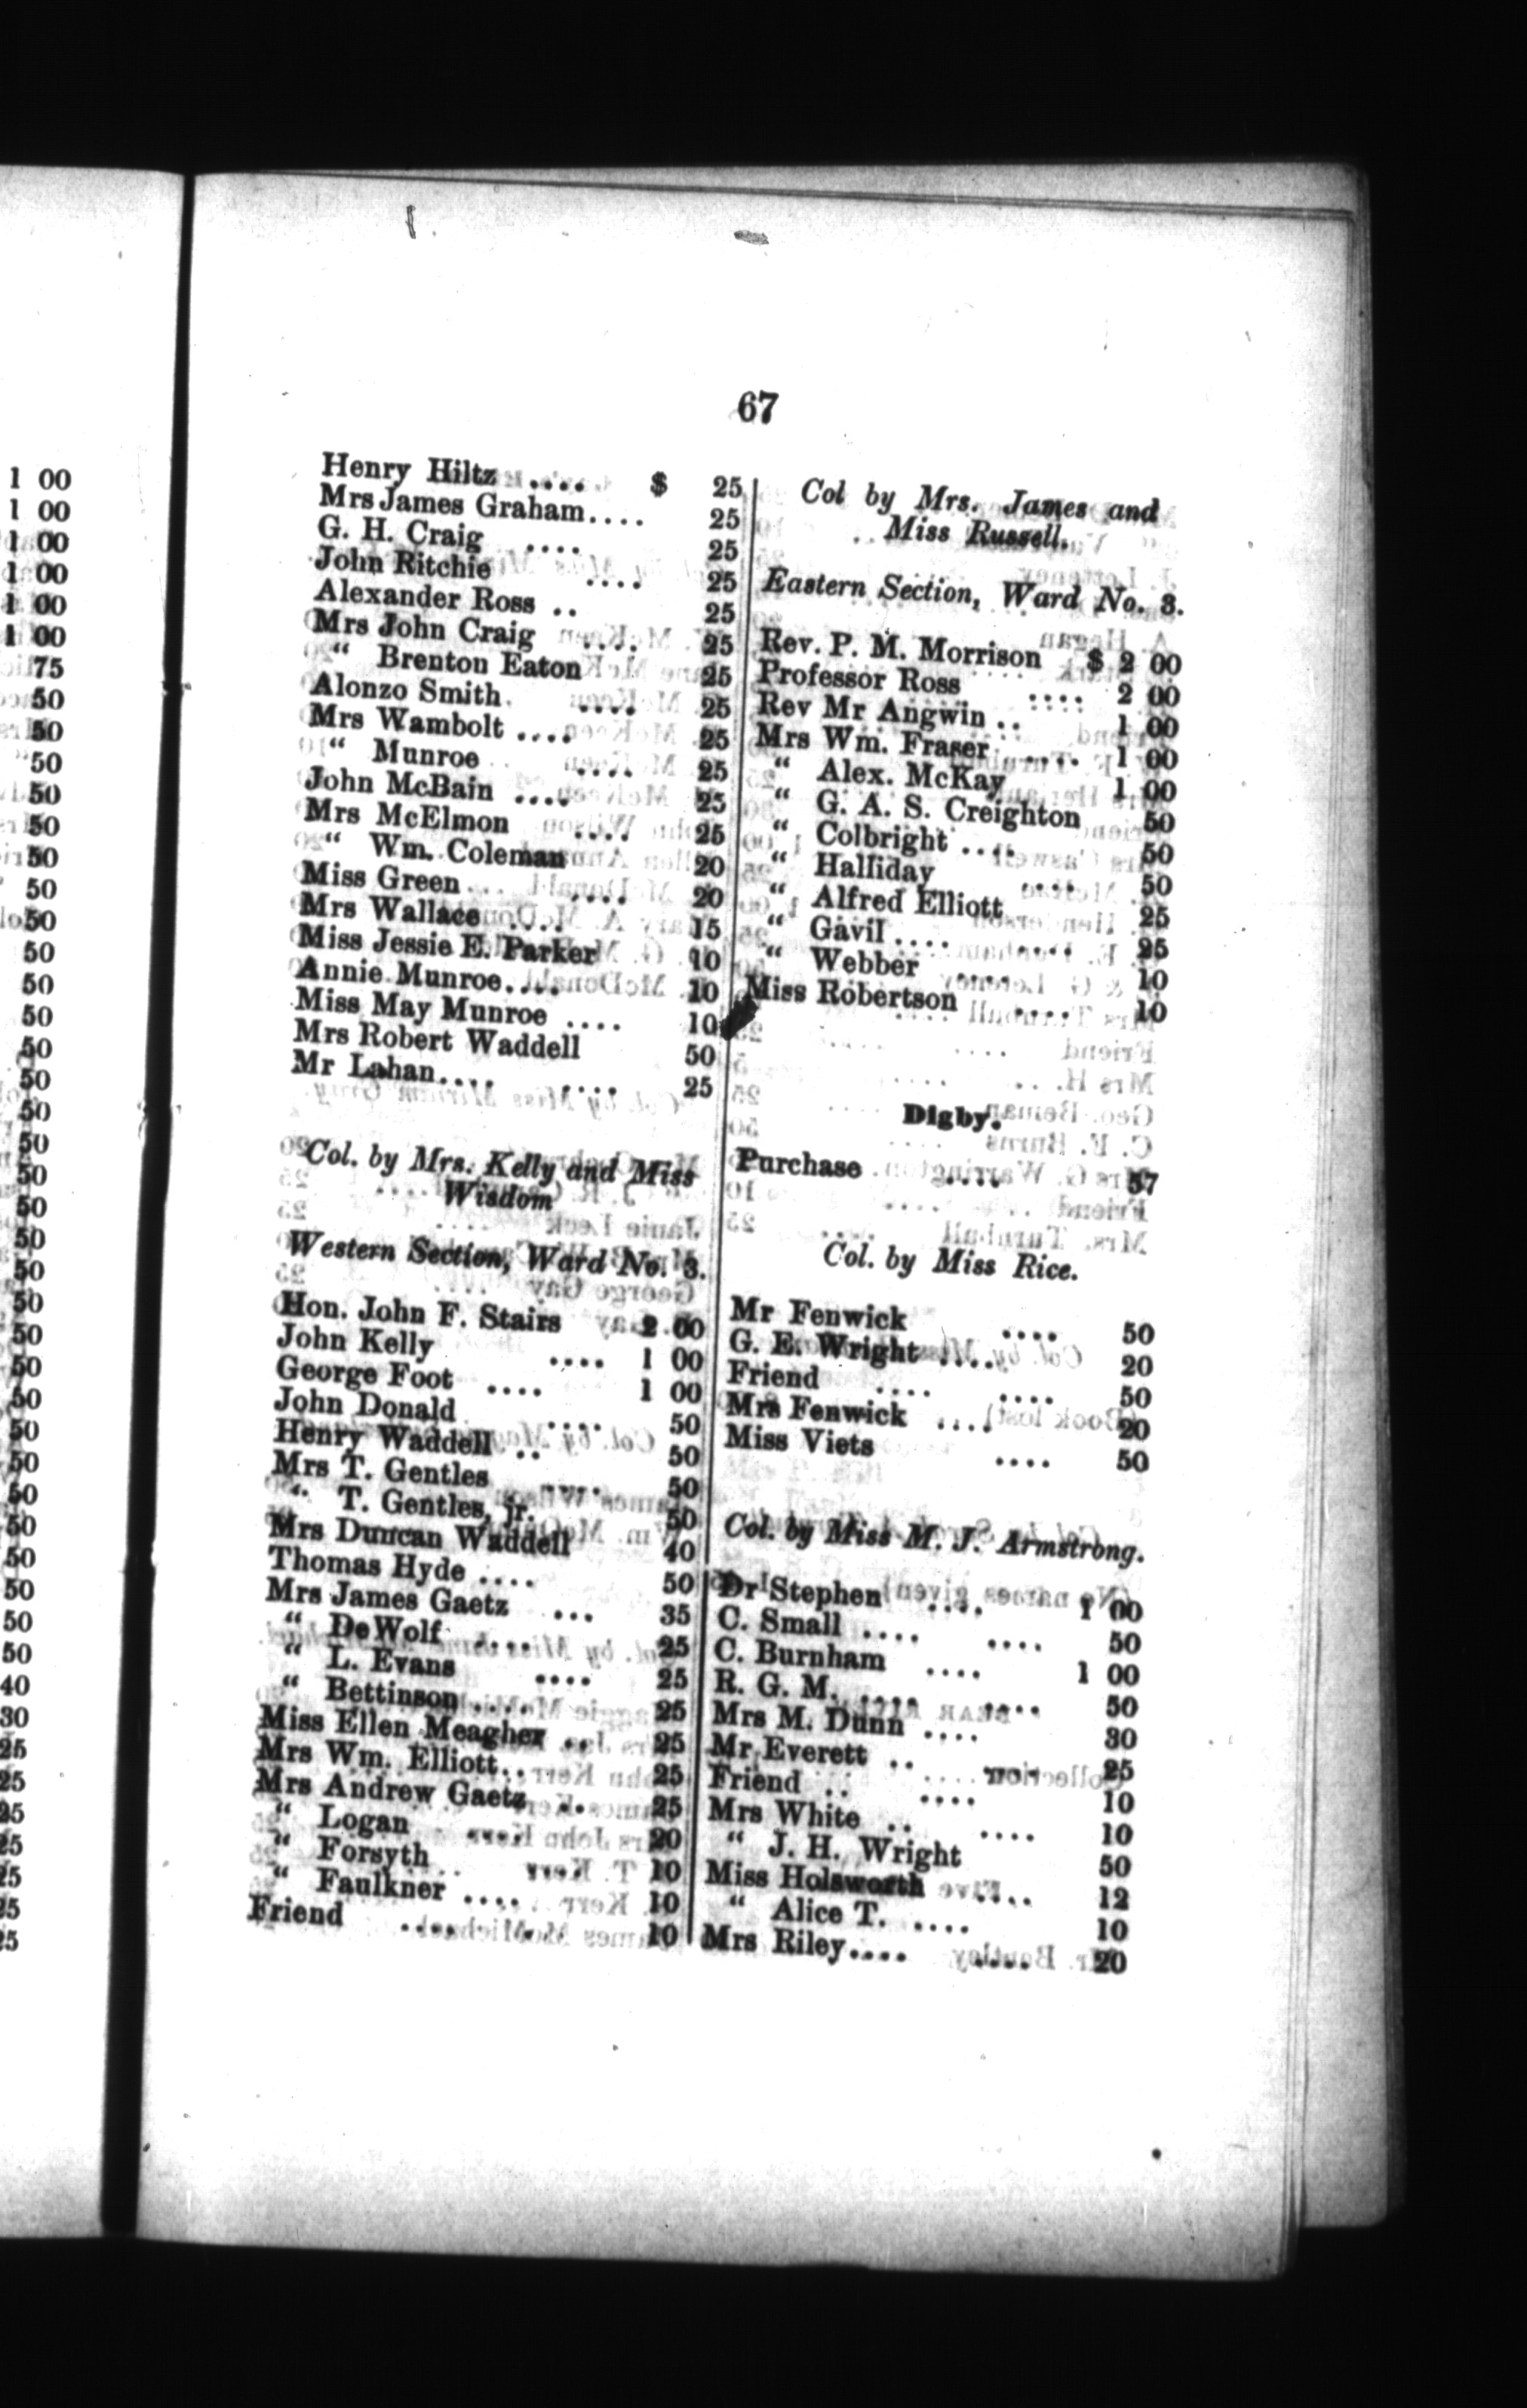 67
Henry Hiltz .... $ 25
Mrs James Graham.... 25
G. H. Craig .... 25
John Ritchie .... 25
Alexander Ross .. 25
Mrs John Craig .... 25
“ Brenton Eaton 25
Alonzo Smith .... 25
Mrs Wambolt .... 25
“ Munroe .... 25
John McBain .... 25
Mrs McElmon .... 25
“ Wm. Coleman 20
Miss Green .... 20
Mrs Wallace .... 15
Miss Jessie E. Parker 10
Annie Munroe.... 10
Miss May Munroe .... 10
Mrs Robert Waddell 50
Mr Lahan.... .... 25
Col. by Mrs. Kelly and Miss
Wisdom
Western Section, Ward No. 3.
Hon. John F. Stairs 2 00
John Kelly .... 1 00
George Foot .... 1 00
John Donald .... 50
Henry Waddell .. 50
Mrs T. Gentles .... 50
“ T. Gentles, jr. 50
Mrs Duncan Waddell 40
Thomas Hyde .... 50
Mrs James Gaetz ... 35
“ DeWolf .... 25
“ L. Evans .... 25
“ Bettinson .... 25
Miss Ellen Meagher .. 25
Mrs Wm. Elliott.. 25
Mrs Andrew Gaetz .. 25
“ Logan .... 20
“ Forsyth .... 10
“ Faulkner .... 10
Friend .... 10
Col by Mrs. James and
Miss Russell.
Eastern Section, Ward No. 3.
Rev. P. M. Morrison $ 2 00
Professor Ross .... 2 00
Rev Mr Angwin .. 1 00
Mrs Wm. Fraser .... 1 00
“ Alex. McKay 1 00
“ G. A. S. Creighton 50
“ Colbright .... 50
“ Halliday .... 50
“ Alfred Elliott 25
“ Gavil .... .... 25
“ Webber .... 10
Miss Robertson .... 10
Digby.
Purchase .... 57
Col. by Miss Rice.
Mr Fenwick .... 50
G. E. Wright .... 20
Friend .... .... 50
Mrs Fenwick .... 20
Miss Viets .... 50
Col. by Miss M. J. Armstrong.
Dr Stephen .... 1 00
C. Small .... .... 50
C. Burnham .... 1 00
R. G. M. .... .... 50
Mrs M. Dunn .... 30
Mr Everett .. .... 25
Friend .. .... 10
Mrs White .. .... 10
“ J. H. Wright 50
Miss Holsworth .... 12
“ Alice T. .... 10
Mrs Riley.... .... 20